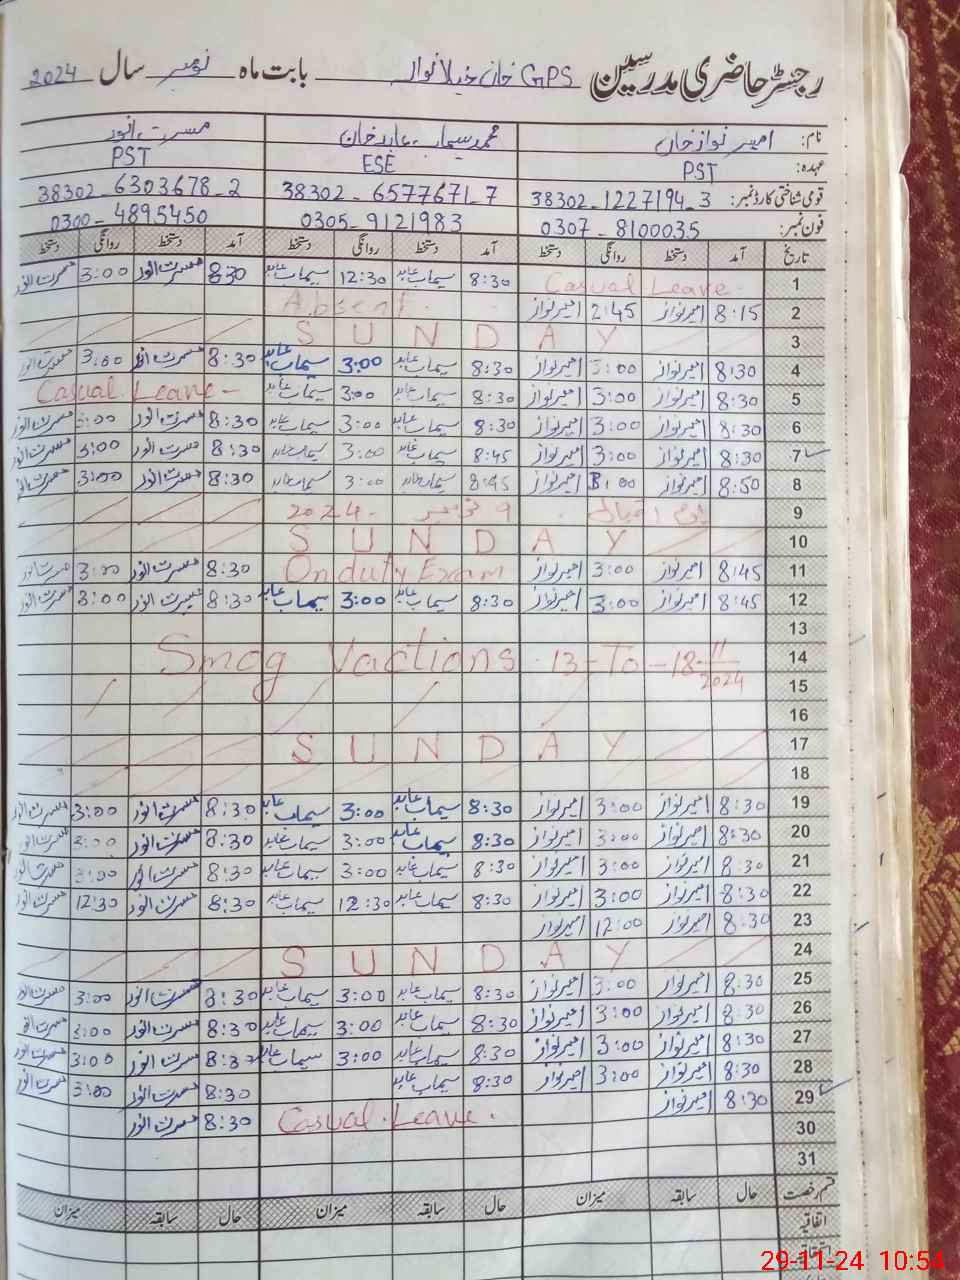 رجسٹر حاضری مدرسین GPS خان خیلانوالہ بابت ماہ نومبر سال 2024
نام: امیر نواز خان محمد سیماب عابد خان مسرت انور
عہدہ: PST ESE PST
قومی شناختی کارڈ نمبر: 38302-1227194-3 38302-6577671-7 38302-6303678-2
فون نمبر: 0307-8100035 0305-9121983 0300-4895450
تاریخ آمد دستخط روانگی دستخط آمد دستخط روانگی دستخط آمد دستخط روانگی دستخط
1 Casual Leave 8:30 سیماب عابد 12:30 سیماب عابد 8:30 مسرت انور 3:00 مسرت انور
2 8:15 امیر نواز 2:45 امیر نواز Absent
3 SUNDAY
4 8:30 امیر نواز 3:00 امیر نواز 8:30 سیماب عابد 3:00 سیماب عابد 8:30 مسرت انور 3:00 مسرت انور
5 8:30 امیر نواز 3:00 امیر نواز 8:30 سیماب عابد 3:00 سیماب عابد Casual Leave -
6 8:30 امیر نواز 3:00 امیر نواز 8:30 سیماب عابد 3:00 سیماب عابد 8:30 مسرت انور 3:00 مسرت انور
7 8:30 امیر نواز 3:00 امیر نواز 8:45 سیماب عابد 3:00 سیماب عابد 8:30 مسرت انور 3:00 مسرت انور
8 8:50 امیر نواز 3:00 امیر نواز 8:45 سیماب عابد 3:00 سیماب عابد 8:30 مسرت انور 3:00 مسرت انور
9 یوم اقبال 9 نومبر 2024
10 SUNDAY
11 8:45 امیر نواز 3:00 امیر نواز On duty Exam 8:30 مسرت انور 3:00 مسرت انور
12 8:45 امیر نواز 3:00 امیر نواز 8:30 سیماب عابد 3:00 سیماب عابد 8:30 مسرت انور 3:00 مسرت انور
13
14 Smog Vactions 13-To-18-11/2024
15
16
17 SUNDAY
18
19 8:30 امیر نواز 3:00 امیر نواز 8:30 سیماب عابد 3:00 سیماب عابد 8:30 مسرت انور 3:00 مسرت انور
20 8:30 امیر نواز 3:00 امیر نواز 8:30 سیماب عابد 3:00 سیماب عابد 8:30 مسرت انور 3:00 مسرت انور
21 8:30 امیر نواز 3:00 امیر نواز 8:30 سیماب عابد 3:00 سیماب عابد 8:30 مسرت انور 3:00 مسرت انور
22 8:30 امیر نواز 3:00 امیر نواز 8:30 سیماب عابد 12:30 سیماب عابد 8:30 مسرت انور 12:30 مسرت انور
23 8:30 امیر نواز 12:00 امیر نواز
24 SUNDAY
25 8:30 امیر نواز 3:00 امیر نواز 8:30 سیماب عابد 3:00 سیماب عابد 8:30 مسرت انور 3:00 مسرت انور
26 8:30 امیر نواز 3:00 امیر نواز 8:30 سیماب عابد 3:00 سیماب عابد 8:30 مسرت انور 3:00 مسرت انور
27 8:30 امیر نواز 3:00 امیر نواز 8:30 سیماب عابد 3:00 سیماب عابد 8:30 مسرت انور 3:00 مسرت انور
28 8:30 امیر نواز 3:00 امیر نواز 8:30 سیماب عابد 8:30 مسرت انور 3:00 مسرت انور
29 8:30 امیر نواز Casual Leave. 8:30 مسرت انور
30
31
قسم رخصت حال سابقہ میزان حال سابقہ میزان حال سابقہ میزان
اتفاقیہ
29-11-24 10:54